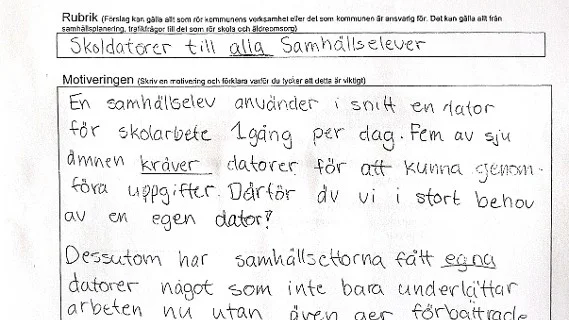 Rubrik (Förslag kan gälla allt som rör kommunens verksamhet eller det som kommunen är ansvarig för. Det kan gälla allt från
samhällsplanering, trafikfrågor till det som rör skola och äldreomsorg)
Skoldatorer till alla Samhällselever
Motiveringen (Skriv en motivering och förklara varför du tycker att detta är viktigt)
En samhällselev använder i snitt en dator
för skolarbete 1gång per dag. Fem av sju
ämnen kräver datorer för att kunna genom-
föra uppgifter. Därför är vi i stort behov
av en egen dator!
Dessutom har samhällsettorna fått egna
datorer något som inte bara underlättar
arbeten nu utan även ger förbättrade